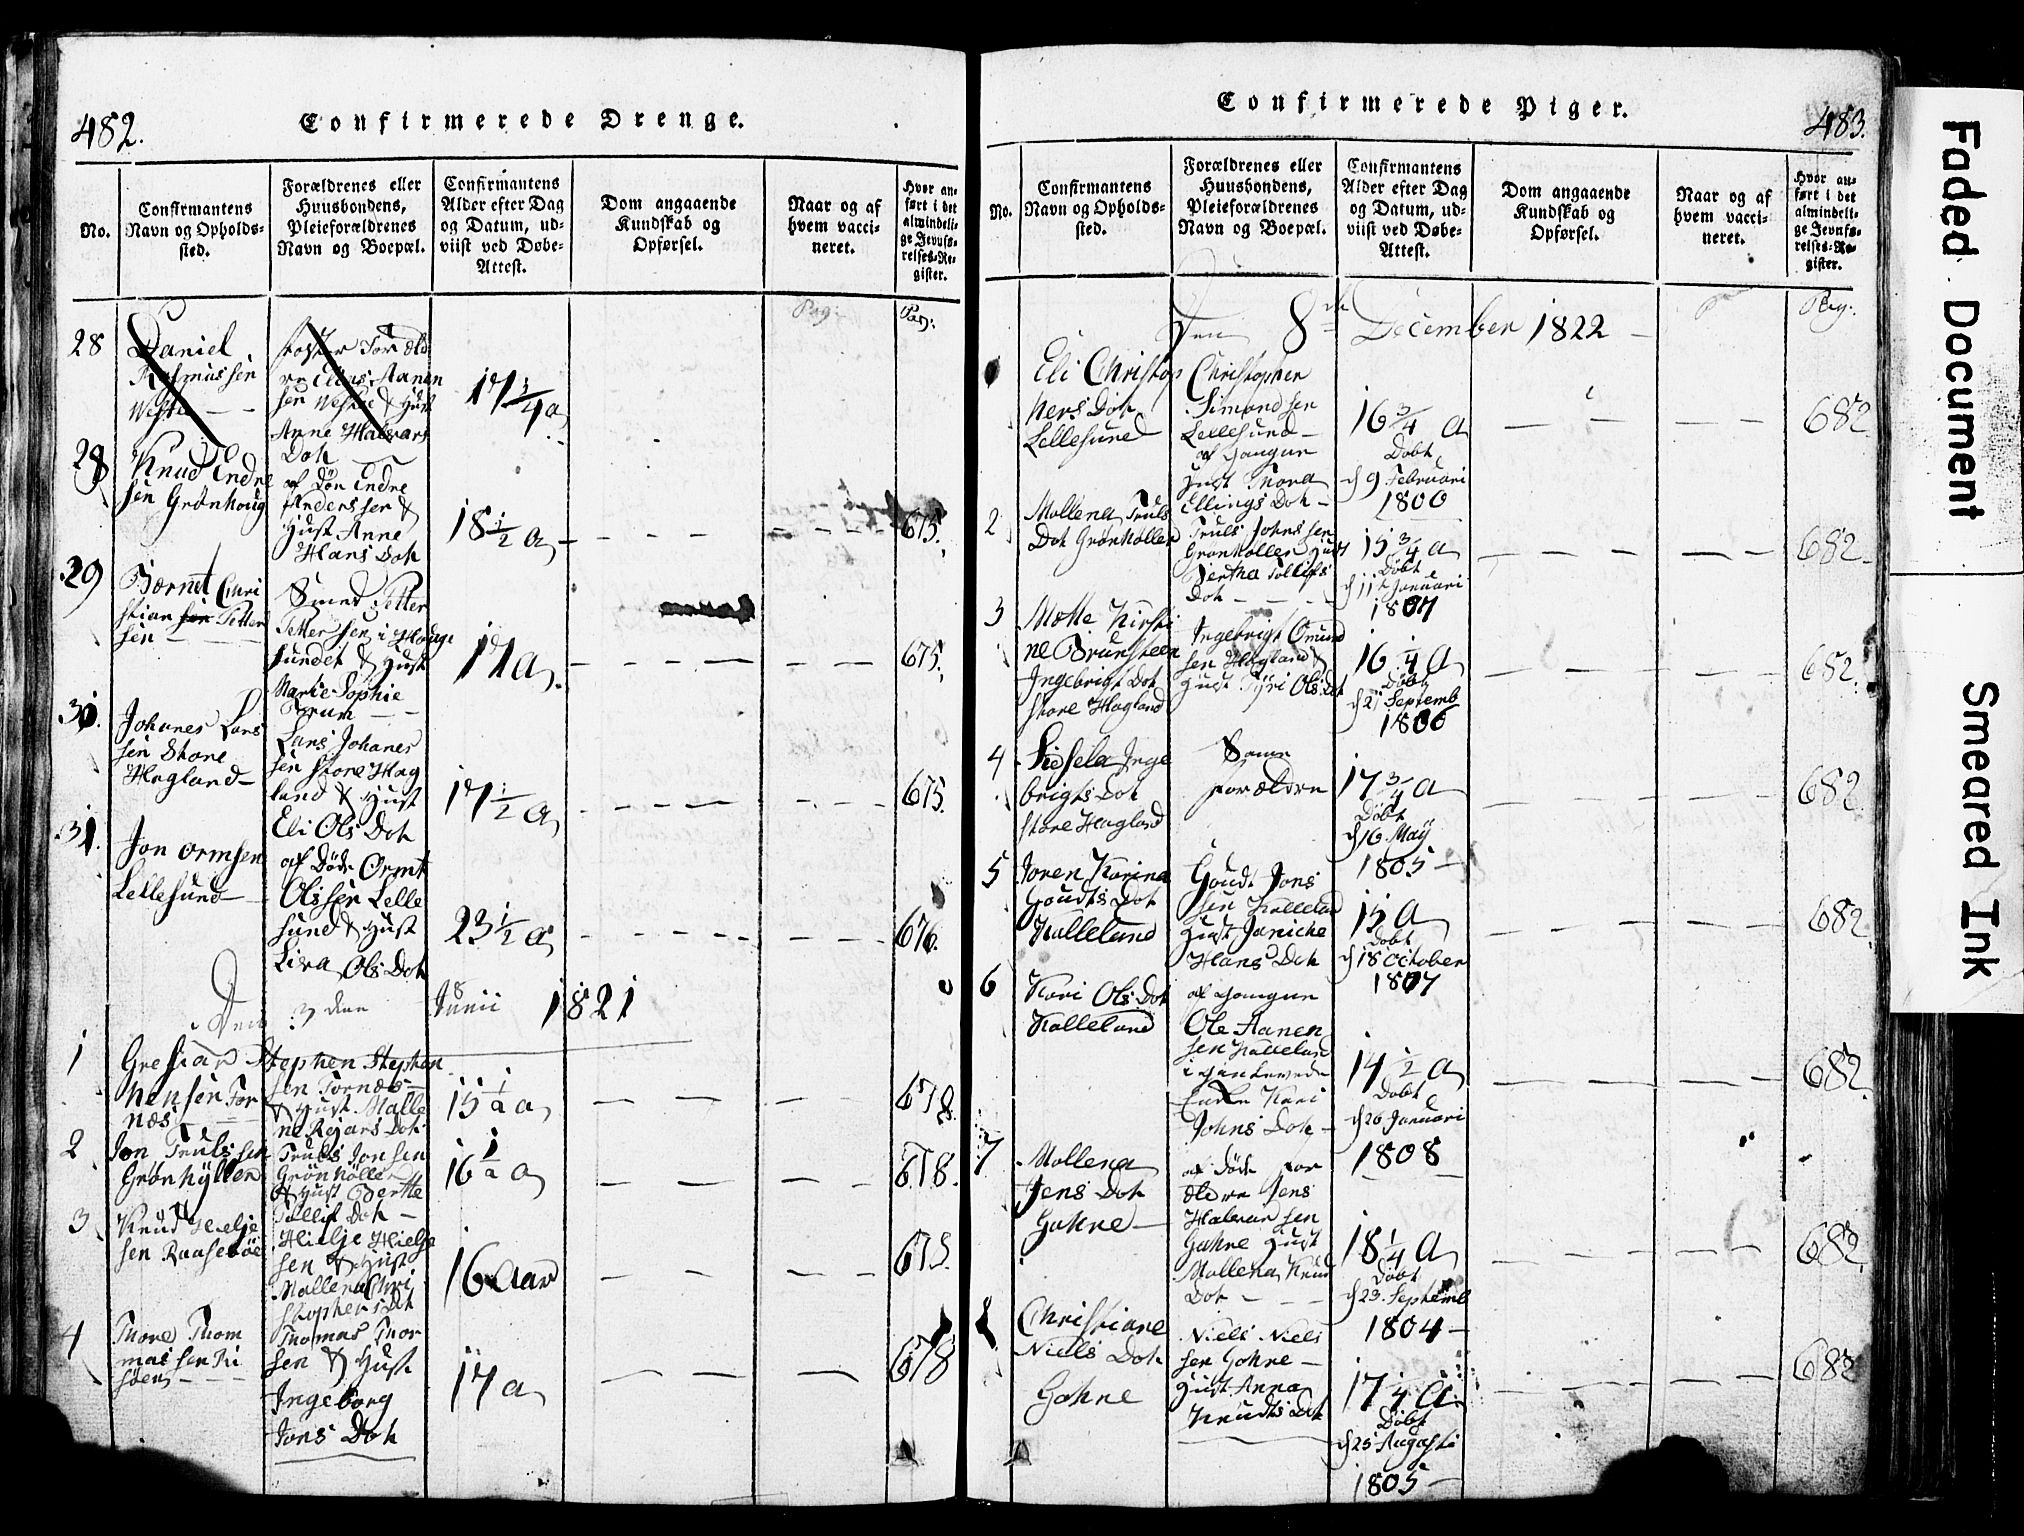 482.
Confirmerede Drenge.
No.
Confirmantens
Navn og Opholds-
sted.
Forældrenes eller
Huusbondens,
Pleieforældrenes
Navn og Boepæl.
Confirmantens
Alder efter Dag
og Datum, ud-
viist ved Døbe-
Attest.
Dom angaaende
Kundskab og
Opførsel.
Naar og af
hvem vacci-
neret.
Hvor an-
ført i det
almindeli-
ge Jevnfø-
relses-Re-
gister.
Pag:
28
Daniel
Rasmussen
Foster Foræld
re Elias Aanen
sen & Hust
Anne Halvars
Dot
17 3/4 a
28
Knud Endre
sen Grønhoug
af Død Endre
Anderssen &
Hust Anne
Hans Dot
18 1/2 a
675.
29
Bernt Chri
stian sen Petter
sen
Smed Petter
Petter sen i Houge
sundet & Hust
Marie Sophie
17 a
675.
30.
Johanes Lars
sen Store
Hagland
Lars Johanes
sen Store Hag
land & Hust
Eli Ols Dot
17 1/2 a
675.
31.
Jon ormsen
Lellesund
af Døde Ormt
Olssen Lelle
sund & Hust
Siva Ols Dot
23 1/2 a
676.
Den 3 den Junii 1821
1
Gresiar Step
hensen Tor
næs
Stephen Stephen
sen Tornæs
& Hust Malle
ne Rejars Dot
15 1/2 a
678.
2
Jon Truls sen
Grønhyllen
Truls Jonsen
Grønhølle
& Hust Berthe
Tollif Dot
16 1/2 a
678.
3
Knud Hielje
sen Raasebøe
Hielje Hielje
sen & Hust
Mallena Chri
stophers Dot
16 Aar
678.
4
Thore Thom
mas sen
Thomas Thor
sen & Hust
Ingeborg
Jons Dot
17 a
678
Confirmerede Piger.
483.
No.
Confirmantens
Navn og Opholds-
sted.
Forældrenes eller
Huusbondens,
Pleieforældrenes
Navn og Boepæl.
Confirmantens
Alder efter Dag
og Datum, ud-
viist ved Døbe-
Attest.
Dom angaaende
Kundskab og
Opførsel.
Naar og af
hvem vacci-
neret.
Hvor an-
ført i det
almindeli-
ge Jevnfø-
relses-Re-
gister.
Pag:
Den 8de December 1822
Eli Christop
hers Dot
Lellesund
Christopher
Simondsen
Lellesund
af
Hust Thora
Ellings Dot
16 3/4 a
Døbt
d 9 Februari
1806
682
2
Mallena Truls
Dot Grønhøllen
Truls Johnssen
Grønhøllen Hust
Bertha Tollifs
Dot
15 3/4 a
Døbt
d 11te Januari
1807
682
3
Mette Kirsti
ne Brunsteen
Ingebrigt Dot
Store Hagland
Ingebrigt Omund
sen Hagland &
Hust Tyri Ols Dot
16 1/4 a
Døbt
d 21 Septemb
1806
682
4
Sidsela Inge
brigts Dot
Store Hagland
Same
forældre
17 3/4 a
Døbt
d 16 Maij
1805
682
5
Joren Karina
Goudts Dot
Kallelund
Goudt Jons
sen Kallelund
Hust Janiche
Hans Dot
15 a
Døbt
d 18 October
1807
682
6
Kari Ols Dot
Kallelund
af
Ole Aanen
sen Kallelund
Kari
Johns Dot
14 1/2 a
Døbt
d 26 Januari
1808
682
7
Mallena
Jens Dot
Gahne
af Døde for
ældre Jens
Halvar sen
Gahne Hust
Mallena Knud
Dot
18 1/4 a
Døbt
d 23 Septemb
1804
682
8
Christiane
Niels Dot
Gahne
Niels Niels
sen Gahne
Hust Anna
Knudts Dot
17 1/4 a
Døbt
d 25 Augusti
1805
682
Faded Document
Smeared Ink